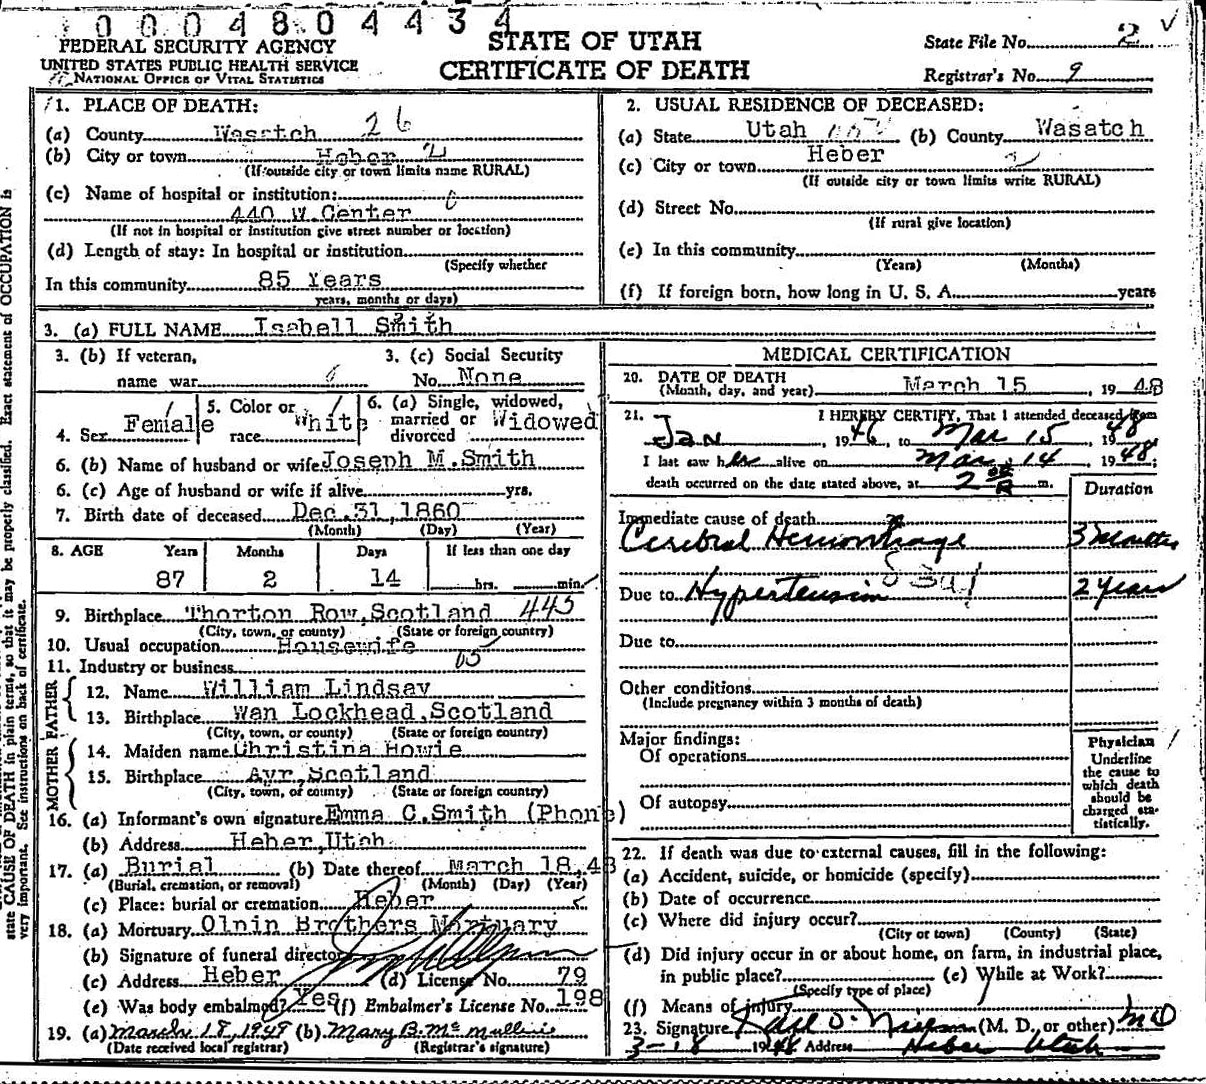 0004804434
FEDERAL SECURITY AGENCY
UNITED STATES PUBLIC HEALTH SERVICE
NATIONAL OFFICE OF VITAL STATISTICS
STATE OF UTAH
CERTIFICATE OF DEATH
State File No. 2
Registrar's No. 9
1. PLACE OF DEATH:
(a) County Wasatch 26
(b) City or town Heber 2
(If outside city or town limits name RURAL)
(c) Name of hospital or institution: 0
440 W Center
(If not in hospital or institution give street number or location)
(d) Length of stay: In hospital or institution
(Specify whether
In this community 85 Years
years, months or days)
2. USUAL RESIDENCE OF DECEASED:
(a) State Utah (b) County Wasatch
(c) City or town Heber
(If outside city or town limits write RURAL)
(d) Street No.
(If rural give location)
(e) In this community
(Years) (Months)
(f) If foreign born, how long in U. S. A. years
3. (a) FULL NAME Isabell Smith
3. (b) If veteran,
name war
3. (c) Social Security
No. None
4. Sex Female
5. Color or
race White
6. (a) Single, widowed,
married or
divorced Widowed
6. (b) Name of husband or wife Joseph M. Smith
6. (c) Age of husband or wife if alive yrs.
7. Birth date of deceased Dec. 31, 1860
(Month) (Day) (Year)
8. AGE Years Months Days If less than one day
87 2 14 hrs. min.
9. Birthplace Thorton Row, Scotland 445
(City, town, or county) (State or foreign country)
10. Usual occupation Housewife
11. Industry or business
FATHER
12. Name William Lindsay
13. Birthplace Wan Lockhead, Scotland
(City, town, or county) (State or foreign country)
MOTHER
14. Maiden name Christina Howie
15. Birthplace Ayr, Scotland
(City, town, or county) (State or foreign country)
16. (a) Informant's own signature Emma C. Smith (Phone)
(b) Address Heber, Utah
17. (a) Burial (b) Date thereof March 18, 48
(Burial, cremation, or removal) (Month) (Day) (Year)
(c) Place: burial or cremation Heber
18. (a) Mortuary Olpin Brothers Mortuary
(b) Signature of funeral director
(c) Address Heber (d) License No. 79
(e) Was body embalmed? Yes (f) Embalmer's License No. 198
19. (a) March 18, 1948 (b) Mary B. McMullin
(Date received local registrar) (Registrar's signature)
MEDICAL CERTIFICATION
20. DATE OF DEATH
(Month, day, and year) March 15 19 48
21. I HEREBY CERTIFY, That I attended deceased from
Jan, 1946, to Mar 15 1948
I last saw her alive on Mar. 14 1948;
death occurred on the date stated above, at 2 00 A m.
Duration
Immediate cause of death
Cerebral Hemorrhage 3 Months
Due to Hypertension 2 Years
Due to
Other conditions
(Include pregnancy within 3 months of death)
Major findings:
Of operations
Of autopsy
Physician
Underline
the cause to
which death
should be
charged sta-
tistically.
22. If death was due to external causes, fill in the following:
(a) Accident, suicide, or homicide (specify)
(b) Date of occurrence
(c) Where did injury occur?
(City or town) (County) (State)
(d) Did injury occur in or about home, on farm, in industrial place,
in public place? (e) While at Work?
(Specify type of place)
(f) Means of injury
23. Signature (M. D., or other) MD
3-18 1948 Address Heber Utah
state CAUSE OF DEATH in plain terms, so that it may be properly classified. Exact statement of OCCUPATION is
very important. See instructions on back of certificate.